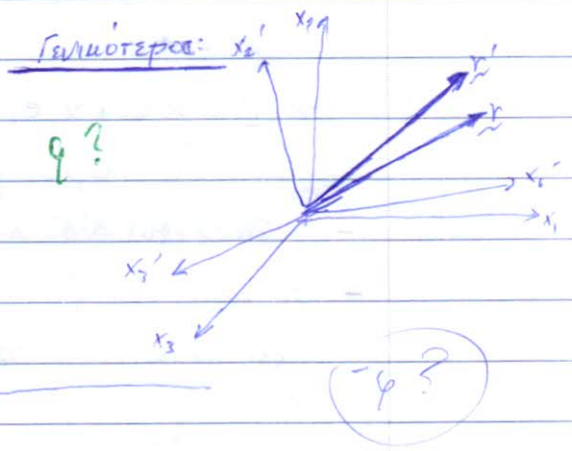 Γενικότερος:
x₂'
x₂
r'
r
φ?
x₁'
x₁
x₃'
x₃
-φ?